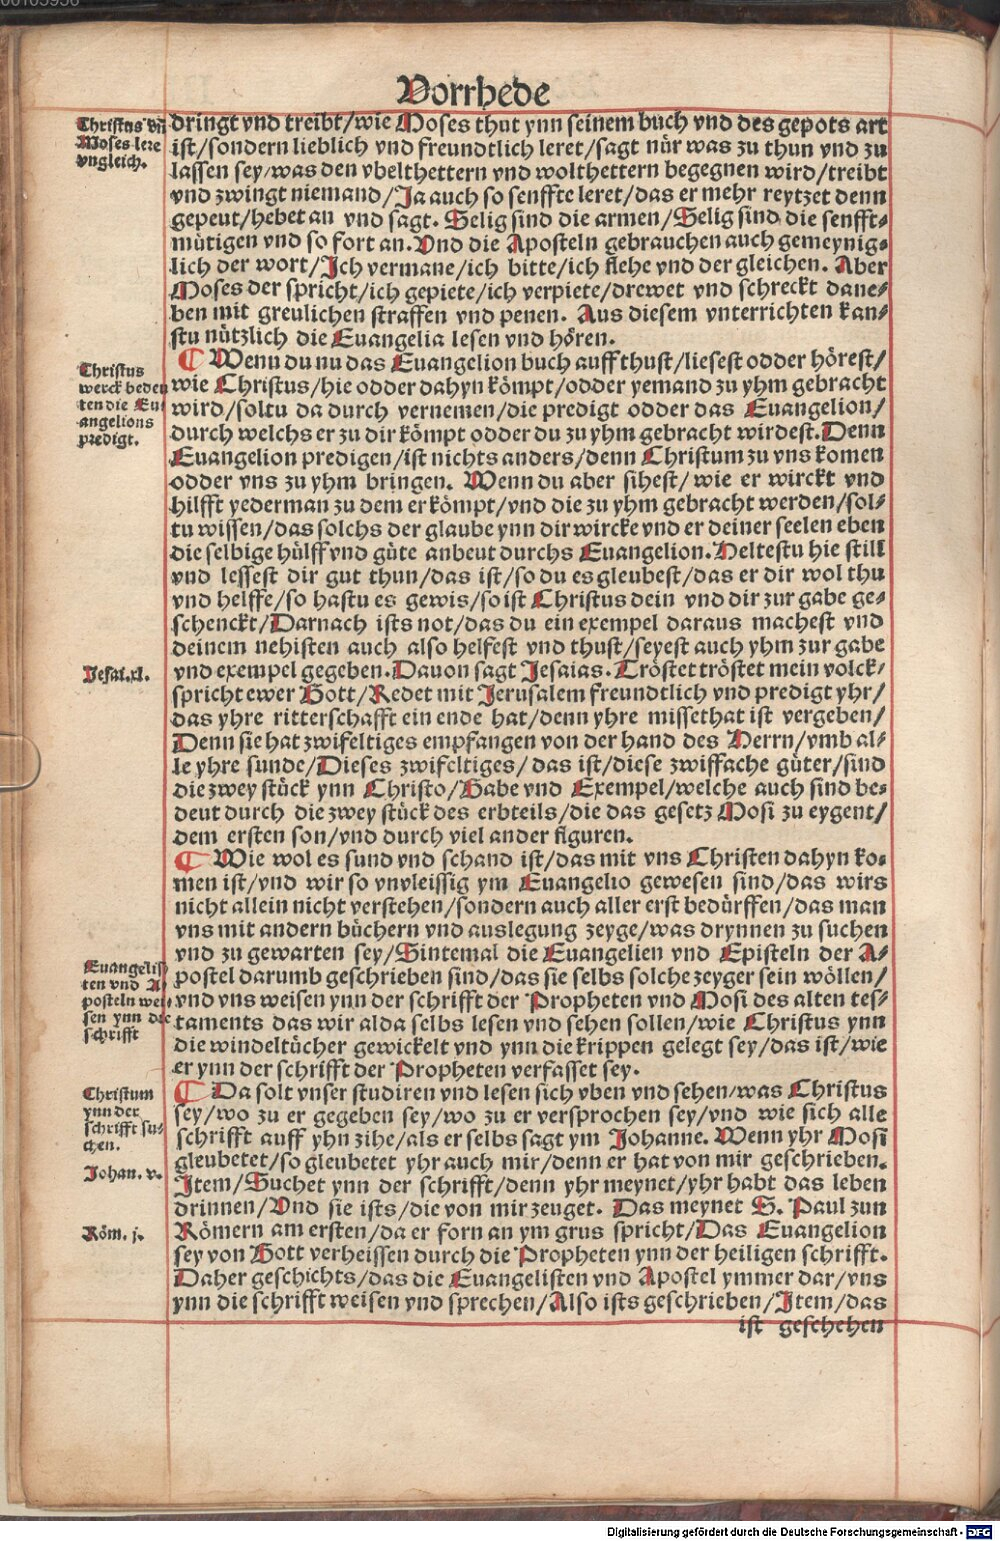 Vorrhede
Christus vñ
Moses lere
vngleich.
dringt vnd treibt/wie Moses thut ynn seinem buch vnd des gepots art
ist/sondern lieblich vnd freundtlich leret/sagt nür was zu thun vnd zu
lassen sey/was den vbelthettern vnd wolthettern begegnen wird/treibt
vnd zwingt niemand/Ja auch so senffte leret/das er mehr reytzet denn
gepeut/hebet an vnd sagt. Selig sind die armen/Selig sind die senfft-
mütigen vnd so fort an. Vnd die Aposteln gebrauchen auch gemeynig-
lich der wort/Ich vermane/ich bitte/ich flehe vnd der gleichen. Aber
Moses der spricht/ich gepiete/ich verpiete/drewet vnd schreckt dane-
ben mit greulichen straffen vnd penen. Aus diesem vnterrichten kan-
stu nützlich die Euangelia lesen vnd hören.
Christus
werck beden
ten die Eu-
angelions
predigt.
¶ Wenn du nu das Euangelion buch auff thust/liesest odder hörest/
wie Christus/hie odder dahyn kömpt/odder yemand zu yhm gebracht
wird/soltu da durch vernemen/die predigt odder das Euangelion/
durch welchs er zu dir kömpt odder du zu yhm gebracht wirdest. Denn
Euangelion predigen/ist nichts anders/denn Christum zu vns komen
odder vns zu yhm bringen. Wenn du aber sihest/wie er wirckt vnd
hilfft yederman zu dem er kömpt/vnd die zu yhm gebracht werden/sol-
tu wissen/das solchs der glaube ynn dir wircke vnd er deiner seelen eben
die selbige hülff vnd güte anbeut durchs Euangelion. Heltestu hie still
vnd lessest dir gut thun/das ist/so du es gleubest/das er dir wol thu
vnd helffe/so hastu es gewis/so ist Christus dein vnd dir zur gabe ge-
schenckt/Darnach ists not/das du ein exempel daraus machest vnd
deinem nehisten auch also helfest vnd thust/seyest auch yhm zur gabe
Jesai.xl.
vnd exempel gegeben. Dauon sagt Jesaias. Tröstet tröstet mein volck-
spricht ewer Gott/Redet mit Jerusalem freundtlich vnd predigt yhr/
das yhre ritterschafft ein ende hat/denn yhre missethat ist vergeben/
Denn sie hat zwifeltiges empfangen von der hand des Herrn/vmb al-
le yhre sunde/Dieses zwifeltiges/das ist/diese zwiffache güter/sind
die zwey stück ynn Christo/Gabe vnd Exempel/welche auch sind be-
deut durch die zwey stück des erbteils/die das gesetz Mosi zu eygent/
dem ersten son/vnd durch viel ander figuren.
¶ Wie wol es sund vnd schand ist/das mit vns Christen dahyn ko-
men ist/vnd wir so vnvleissig ym Euangelio gewesen sind/das wirs
nicht allein nicht verstehen/sondern auch aller erst bedürffen/das man
vns mit andern büchern vnd auslegung zeyge/was drynnen zu suchen
vnd zu gewarten sey/Sintemal die Euangelien vnd Episteln der A-
Euangelis-
ten vnd A-
posteln wei-
sen ynn die
schrifft
postel darumb geschrieben sind/das sie selbs solche zeyger sein wöllen/
vnd vns weisen ynn der schrifft der Propheten vnd Mosi des alten tes-
taments das wir alda selbs lesen vnd sehen sollen/wie Christus ynn
die windeltücher gewickelt vnd ynn die krippen gelegt sey/das ist/wie
er ynn der schrifft der Propheten verfasset sey.
Christum
ynn der
schrifft su-
chen.
¶ Da solt vnser studiren vnd lesen sich vben vnd sehen/was Christus
sey/wo zu er gegeben sey/wo zu er versprochen sey/vnd wie sich alle
schrifft auff yhn zihe/als er selbs sagt ym Johanne. Wenn yhr Mosi
Johan. v.
gleubetet/so gleubetet yhr auch mir/denn er hat von mir geschrieben.
Item/Suchet ynn der schrifft/denn yhr meynet/yhr habt das leben
drinnen/Vnd sie ists/die von mir zeuget. Das meynet S. Paul zun
Röm. j.
Römern am ersten/da er forn an ym grus spricht/Das Euangelion
sey von Gott verheissen durch die Propheten ynn der heiligen schrifft.
Daher geschichts/das die Euangelisten vnd Apostel ymmer dar/vns
ynn die schrifft weisen vnd sprechen/Also ists geschrieben/Item/das
ist geschehen
Digitalisierung gefördert durch die Deutsche Forschungsgemeinschaft - DFG